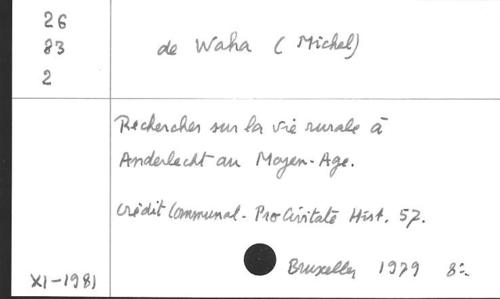 26
83
2
de Waha (Michel)
Recherches sur la vie rurale à
Anderlecht au Moyen-Age.
Crédit Communal - Pro Civitate Hist. 57.
Bruxelles 1979 8°
XI-1981